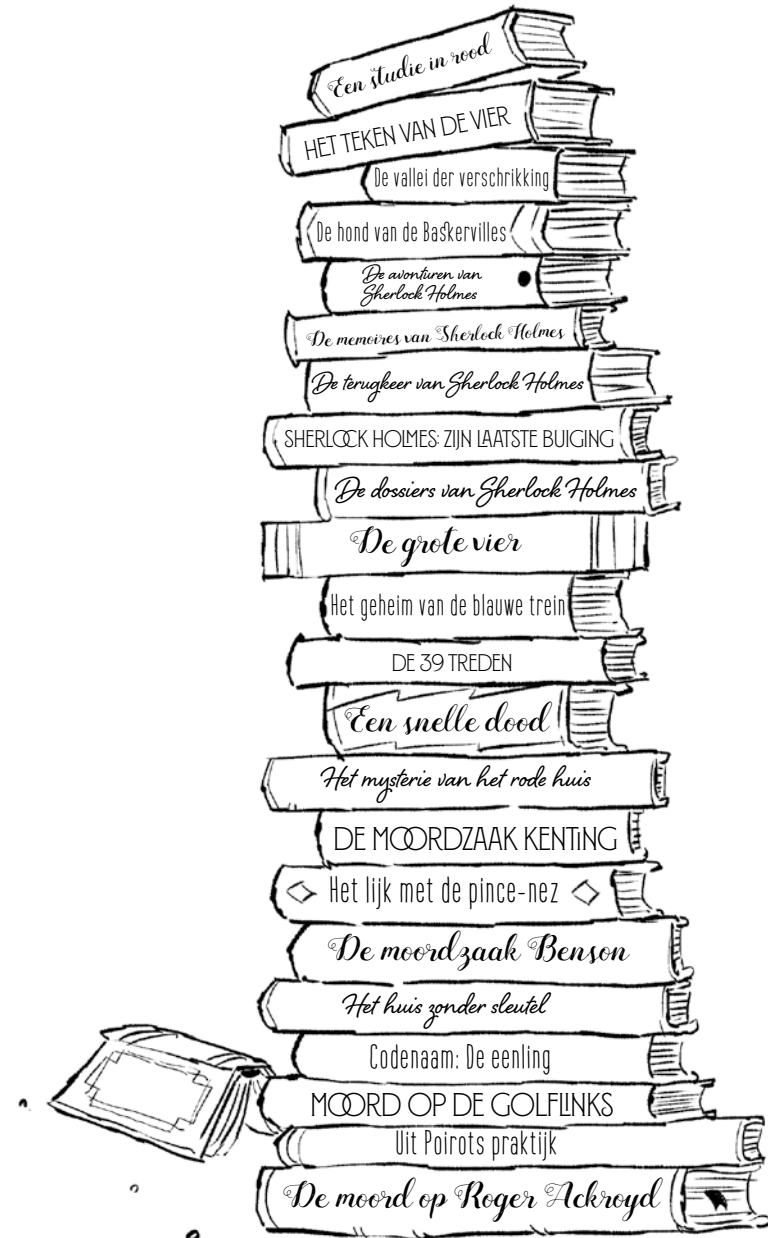 Een studie in rood
HET TEKEN VAN DE VIER
De vallei der verschrikking
De hond van de Baskervilles
De avonturen van
Sherlock Holmes
De memoires van Sherlock Holmes
De terugkeer van Sherlock Holmes
SHERLOCK HOLMES: ZIJN LAATSTE BUIGING
De dossiers van Sherlock Holmes
De grote vier
Het geheim van de blauwe trein
DE 39 TREDEN
Een snelle dood
Het mysterie van het rode huis
DE MOORDZAAK KENTING
Het lijk met de pince-nez
De moordzaak Benson
Het huis zonder sleutel
Codenaam: De eenling
MOORD OP DE GOLFLINKS
Uit Poirots praktijk
De moord op Roger Ackroyd